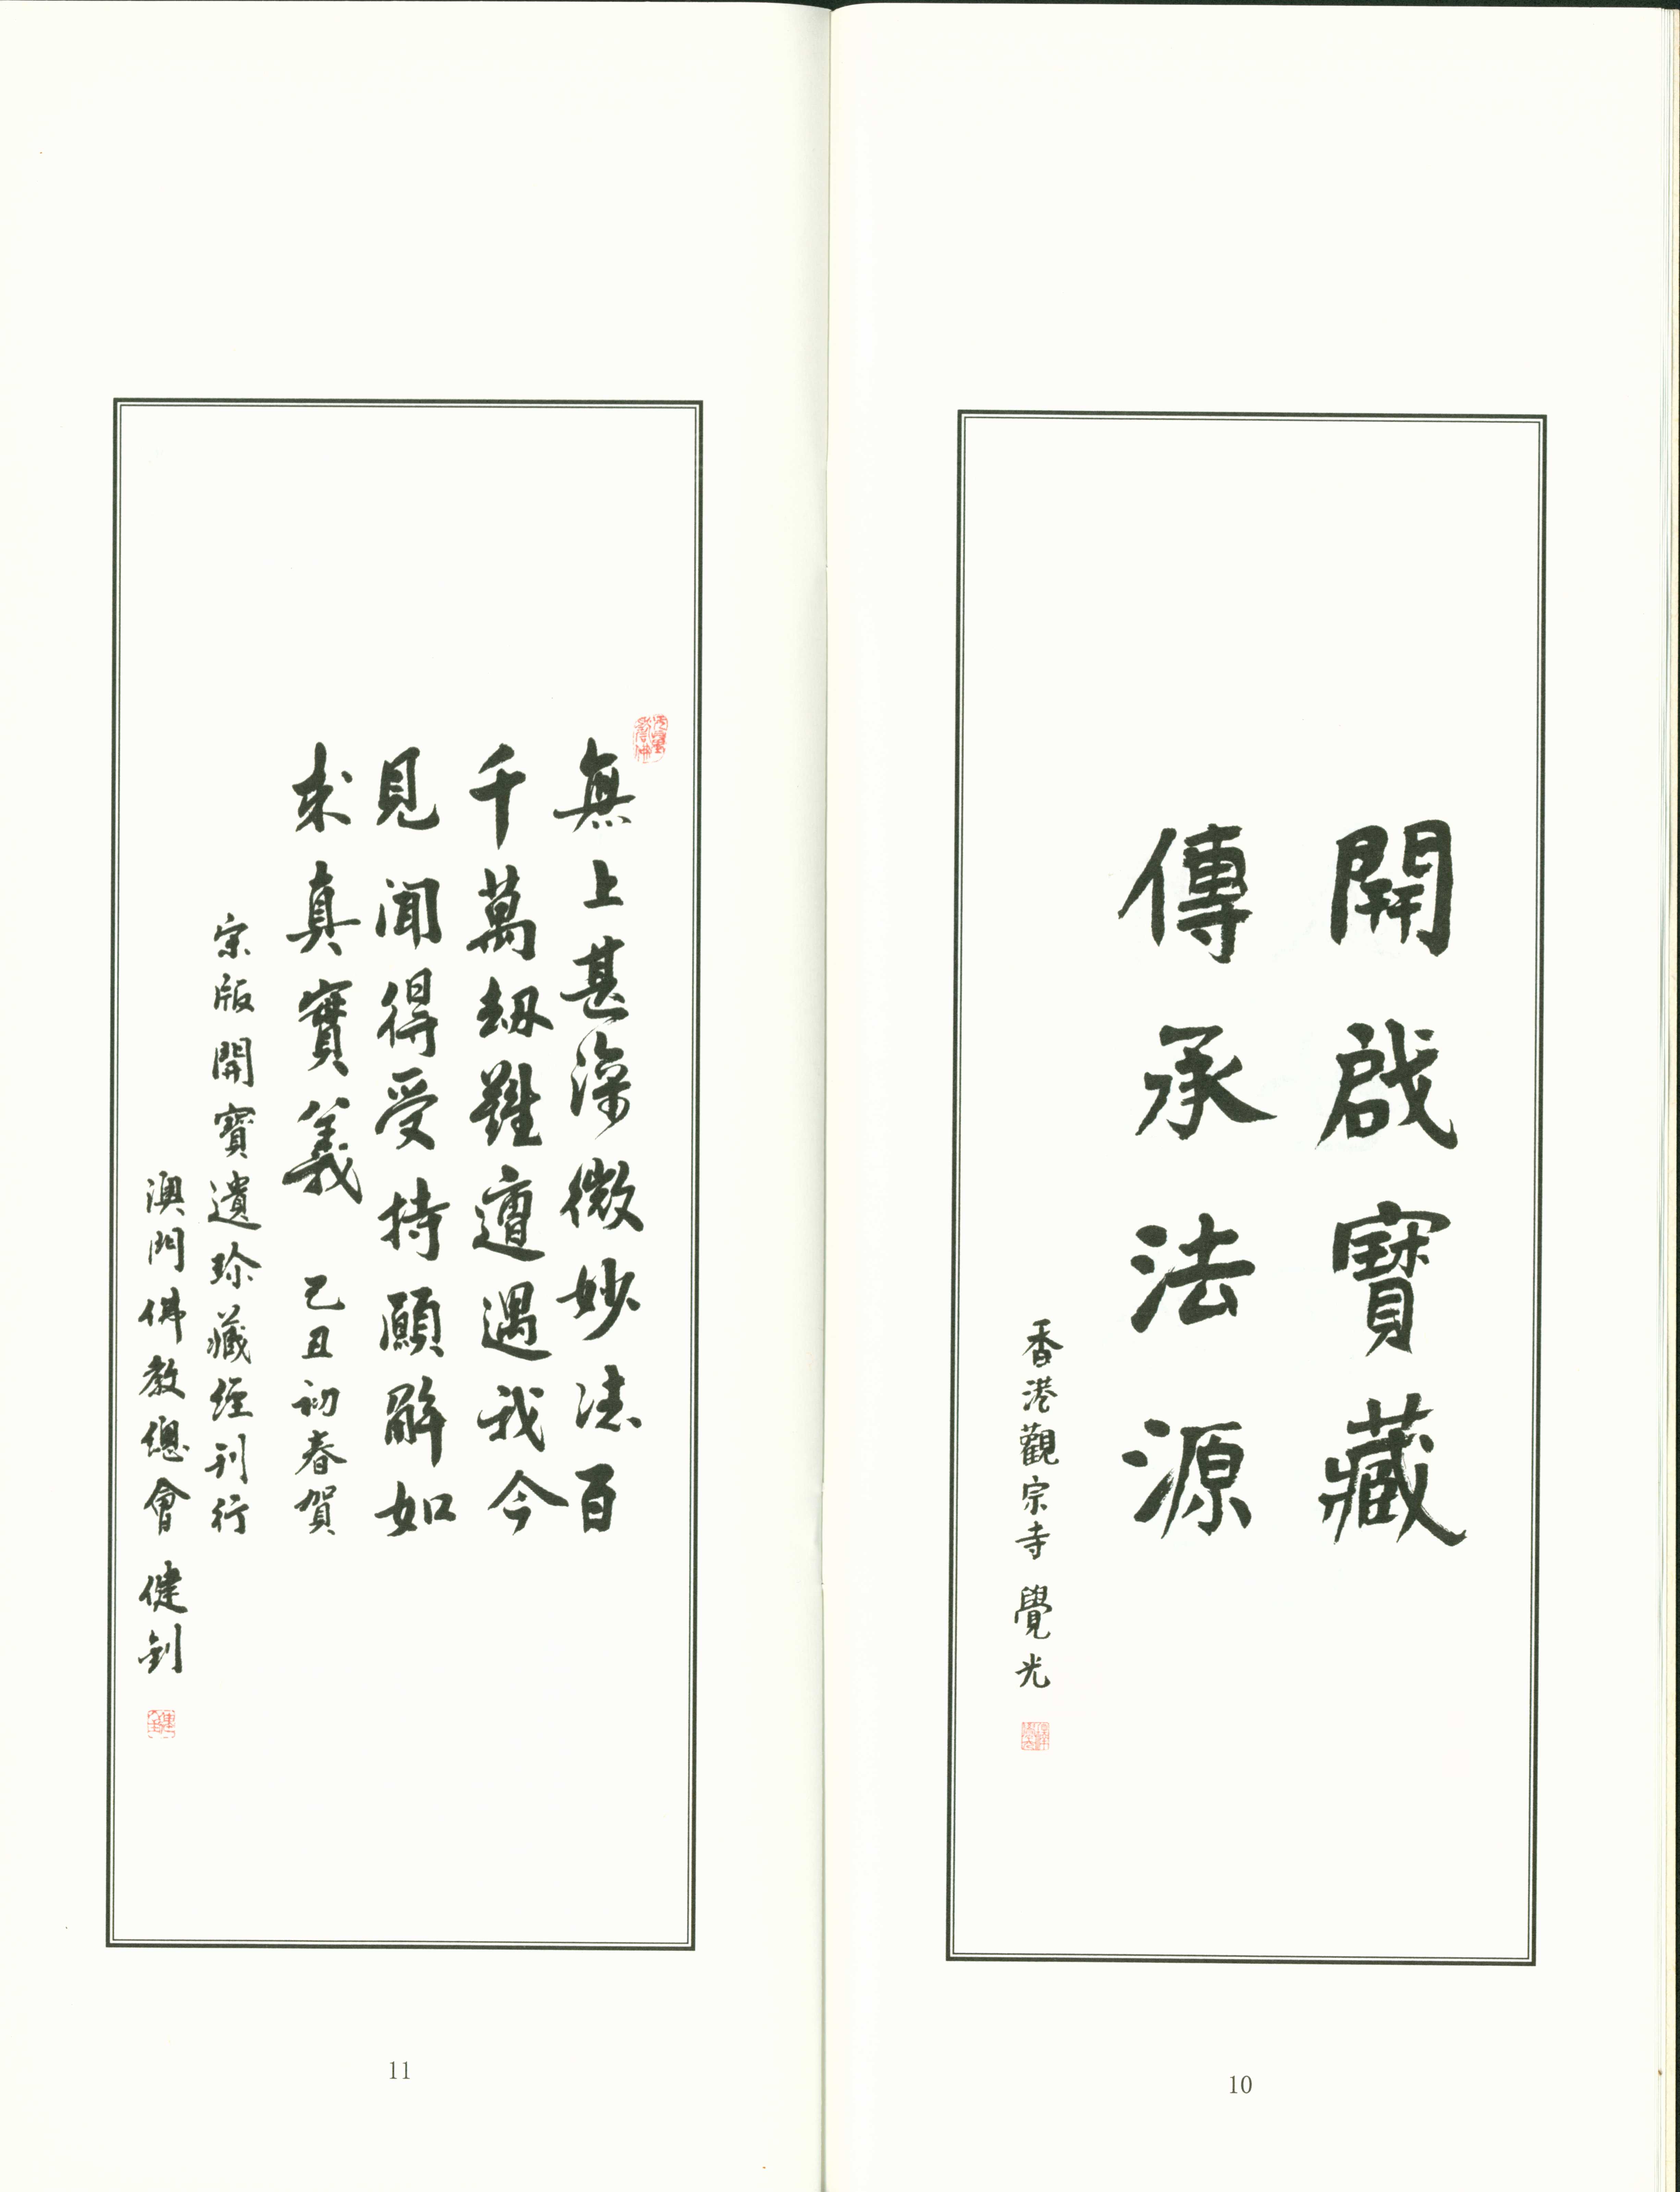 開啟寶藏
傳承法源
香港觀宗寺 覺光
10
無上甚深微妙法百
千萬劫難遭遇我今
見聞得受持願解如
來真實義 己丑初春賀
宋版開寶遺珍藏經刊行
澳門佛教總會 健釗
11